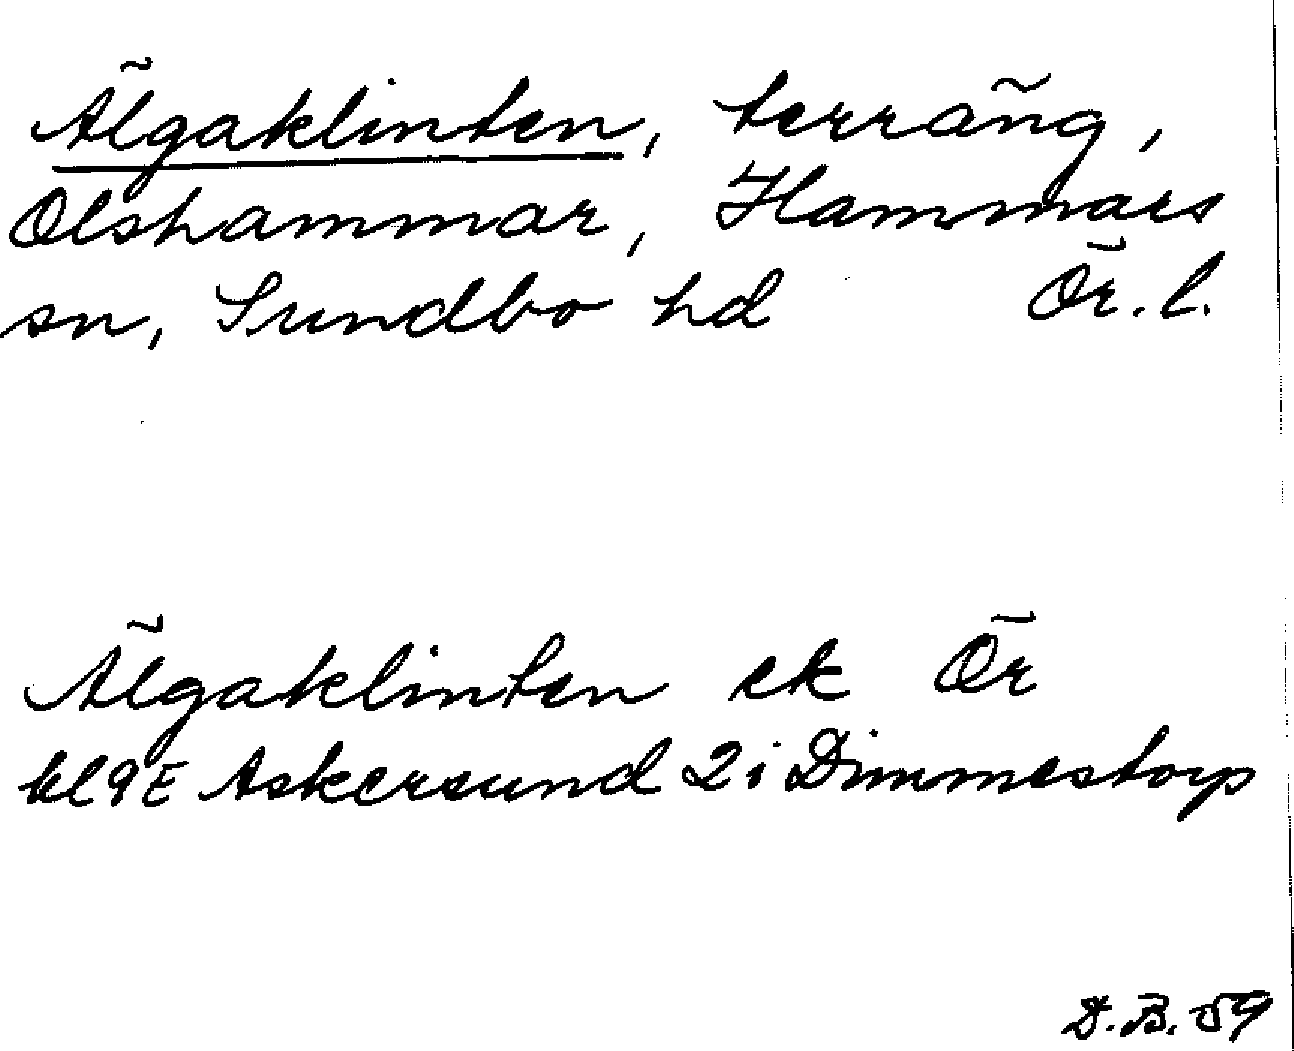 Älgaklinten, terräng,
Olshammar, Hammars
sn, Sundbo hd Ör. l.
Älgaklinten ek Ör
bl 9E Askersund 2 i Dimmestorp
D.B. 59